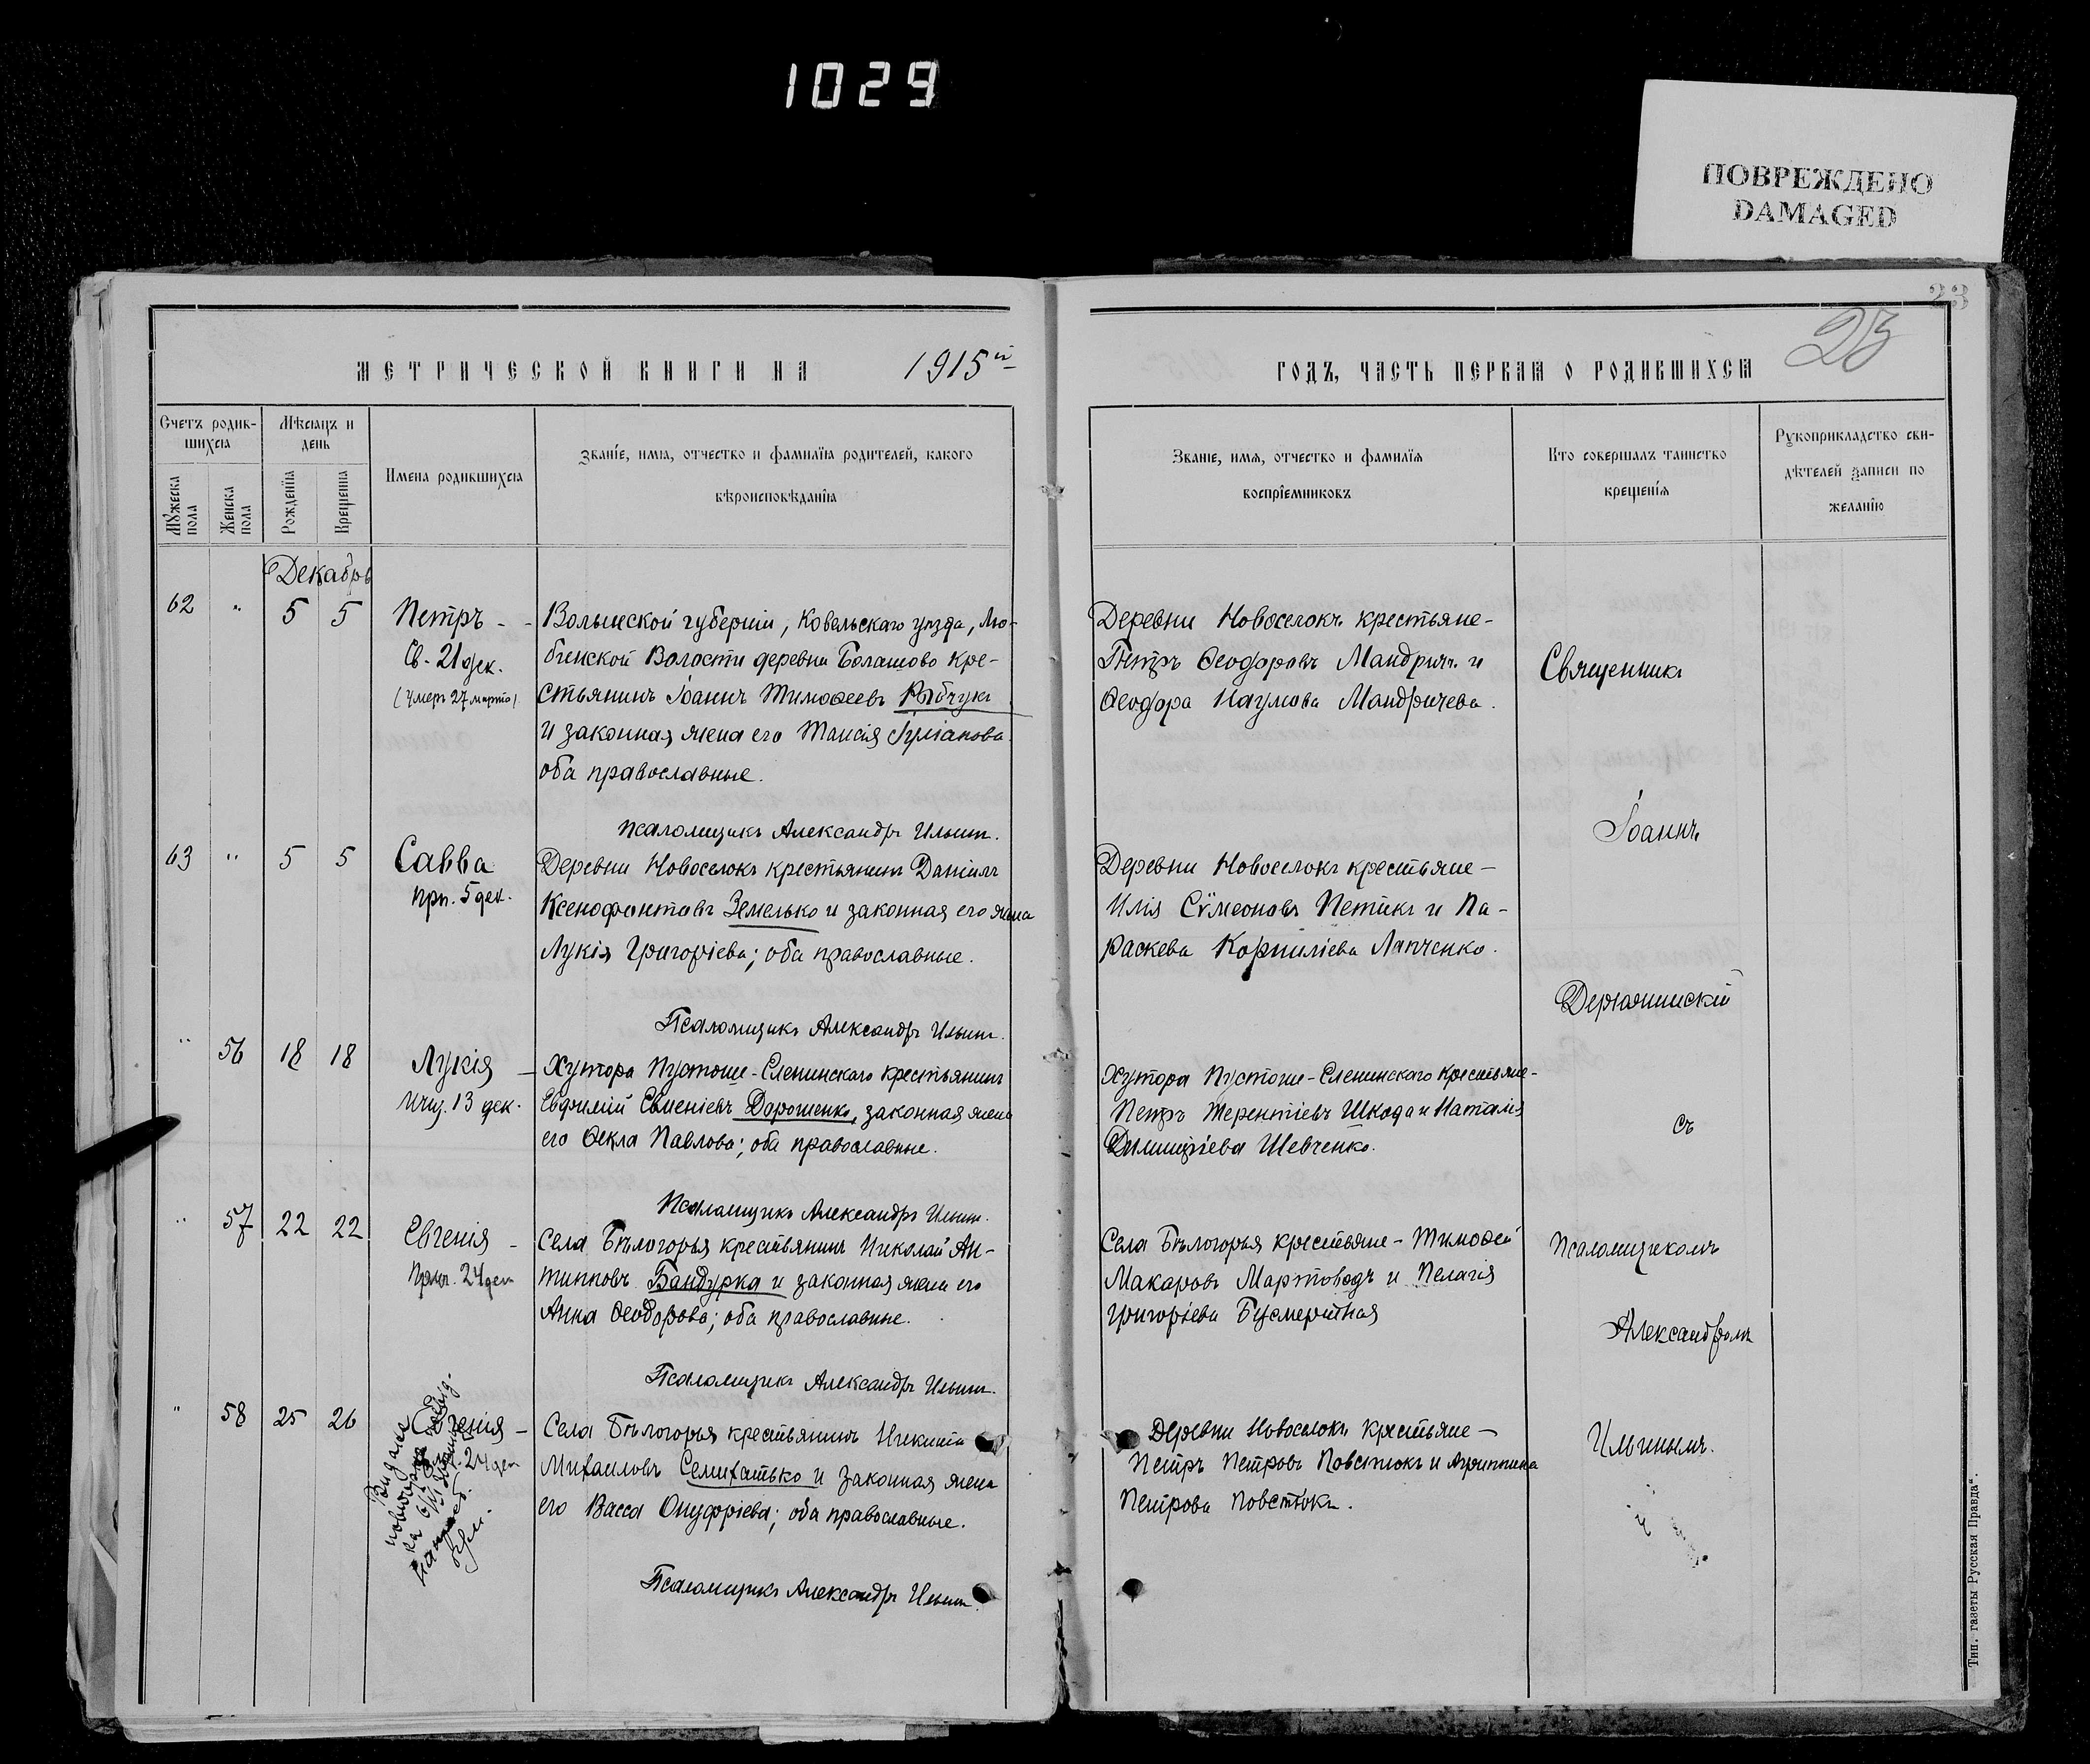 1029
ПОВРЕЖДЕНО
DAMAGED
23
23
МЕТРИЧЕСКОЙ КНИГИ НА 1915й
ГОДЪ, ЧАСТЬ ПЕРВАЯ О РОДИВШИХСЯ
Счетъ родив-
шихся
Мѣсяцъ и
день
Мужеска
пола
Женска
пола
Рожденія
Крещенія
Имена родившихся
Званіе, имя, отчество и фамилія родителей, какого
вѣроисповѣданія
Званіе, имя, отчество и фамилія
воспріемниковъ
Кто совершалъ таинство
крещенія
Рукоприкладство сви-
дѣтелей записи по
желанію
Декабрь
62 " 5 5 Петръ -
Св. 21 дек.
(умеръ 27 марта)
Волынской губерніи, Ковельскаго уѣзда, Лю-
бинской Волости деревни Болашово кре-
стьянинъ Іоаннъ Тимоѳеевъ Рыбчукъ
и законная жена его Таисія Іуліанова
оба православные.
Псаломщикъ Александръ Ильинъ.
Деревни Новоселокъ крестьяне -
Петръ Ѳеодоровъ Мандричъ и
Ѳеодора Наумова Мандричева.
Священникъ
Іоаннъ
63 " 5 5 Савва
прп. 5 дек.
Деревни Новоселокъ крестьянинъ Даніилъ
Ксенофонтовъ Земелько и законная его жена
Лукія Григоріева; оба православные.
Псаломщикъ Александръ Ильинъ.
Деревни Новоселокъ крестьяне -
Илія Сѵмеоновъ Петикъ и Па-
раскева Корниліева Лапченко.
" 56 18 18 Лукія -
мчц. 13 дек.
Хутора Пустоше-Сленинскаго крестьянинъ
Евфимій Евменіевъ Дорошенко, законная жена
его Ѳекла Павлова; оба православные.
Псаломщикъ Александръ Ильинъ.
Хутора Пустоше-Сленинскаго крестьяне -
Петръ Терентіевъ Шкода и Наталія
Димитріева Шевченко.
съ
" 57 22 22 Евгенія -
Прмц. 24 дек
Села Бѣлогорья крестьянинъ Николай Ан-
типповъ Бандурка и законная жена его
Анна Ѳеодорова; оба православные.
Псаломщикъ Александръ Ильинъ.
Села Бѣлогорья крестьяне - Тимоѳей
Макаровъ Мартоводъ и Пелагія
Григоріева Бусмертная
Псаломщикомъ
Александромъ
" 58 25 26 Евгенія -
24 дек
Села Бѣлогорья крестьянинъ Никита
Михаиловъ Семихатько и законная жена
его Васса Онуфріева; оба православные.
Псаломщикъ Александръ Ильинъ.
Деревни Новоселокъ крестьяне -
Петръ Петровъ Повстюкъ и Агриппина
Петрова Повстюкъ.
Ильинымъ.
Тип. газеты Русская Правда".